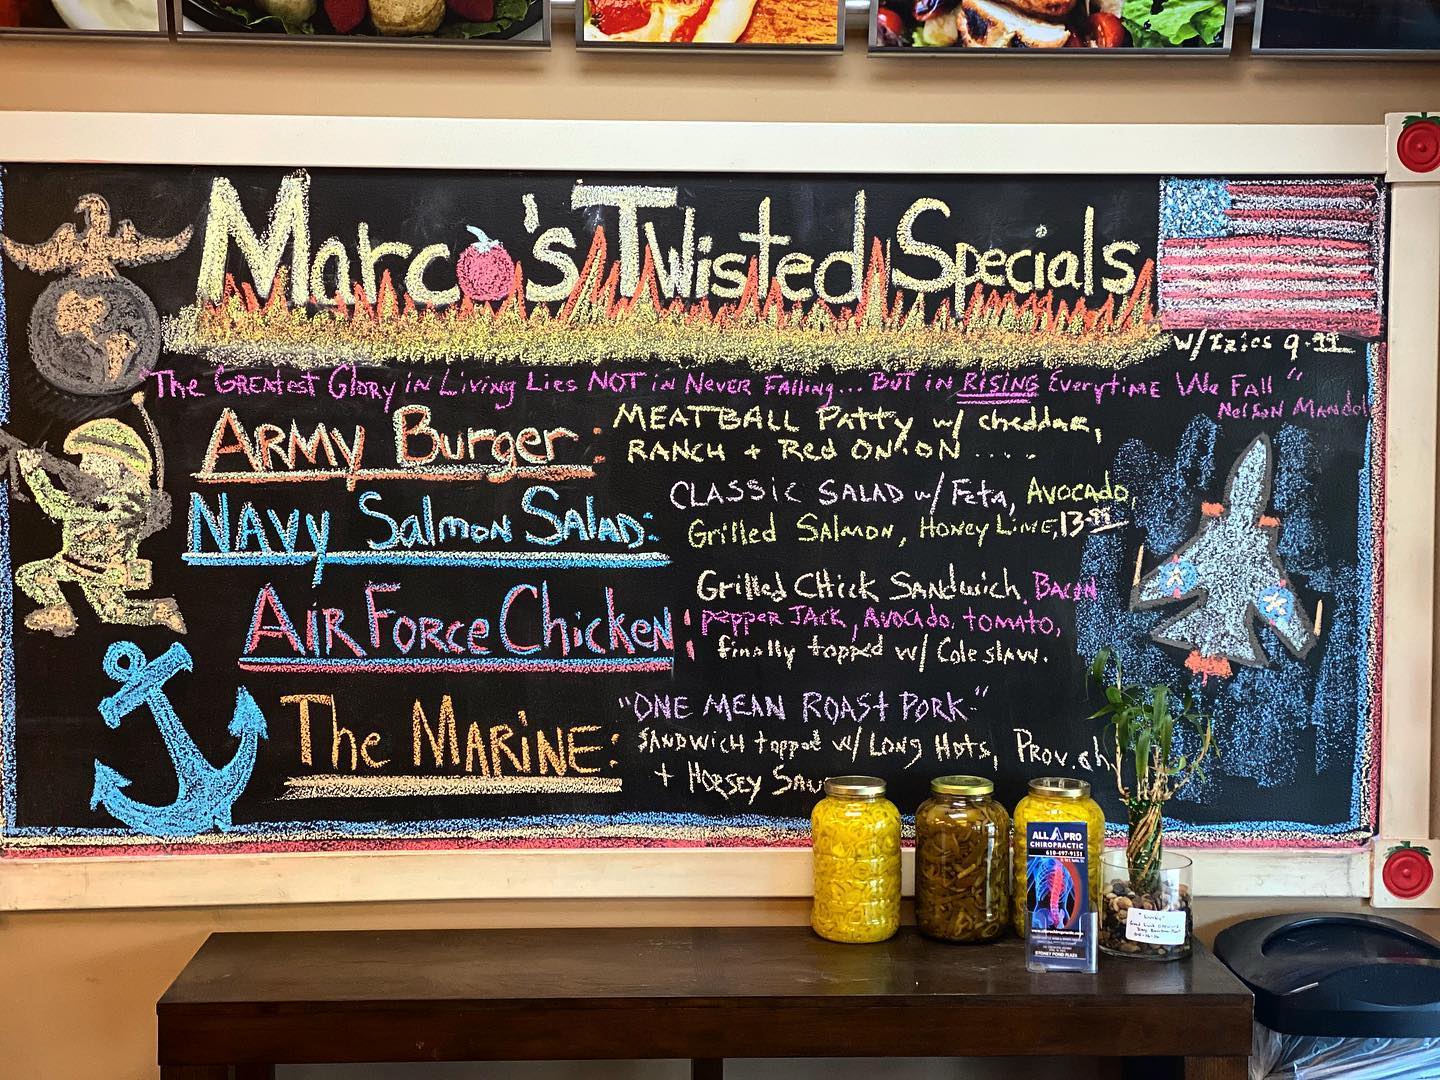 Marco's Twisted Specials
w/Fries 9.99
"The Greatest Glory in Living Lies NOT in Never Falling... BUT in RISING Everytime We Fall"
Nelson Mandel
ARMY Burger:
MEATBALL Patty w/ cheddar,
RANCH + Red ONION ....
NAVY Salmon Salad:
CLASSIC SALAD w/ Feta, Avocado,
Grilled Salmon, Honey Lime, 13.99
Air Force Chicken:
Grilled Chick Sandwich, Bacon
pepper JACK, Avocado, tomato,
finally topped w/ Cole slaw.
The MARINE:
"ONE MEAN ROAST PORK"
SANDWICH topped w/ Long Hots, Prov. ch
+ Horsey Sau
ALL PRO
CHIROPRACTIC
610-497-9151
STONEY POND PLAZA
"Lucky"